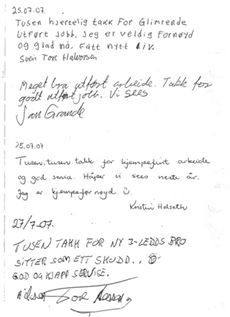 25.07.07.
Tusen hjertelig takk For Glimrende
utført Jobb. Jeg er veldig Fornøyd
og glad nå. Fått nytt liv.
Svein Tor Halvorsen
Meget bra utført arbeide. Takk for
godt utført jobb. Vi sees
Jan Grande
25.07.07
Tusen, tusen takk for kjempefint arbeide
og god service. Håper vi sees neste år.
Jeg er kjempefornøyd
Kirsten
27/7-07.
TUSEN TAKK FOR NY 3-LEDDS BRO
SITTER SOM ETT SKUDD..
GOD OG KJAPP SERVICE.
TOR